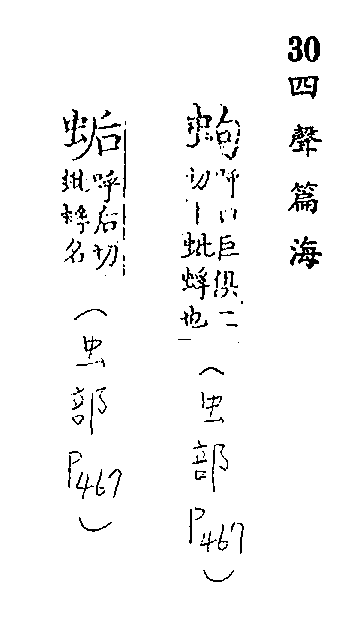 30四聲篇海
蚼
呼口巨俱二
切丨蚍蜉也
（虫部P467）
呼后切
蚍蜉名
（虫部P467）